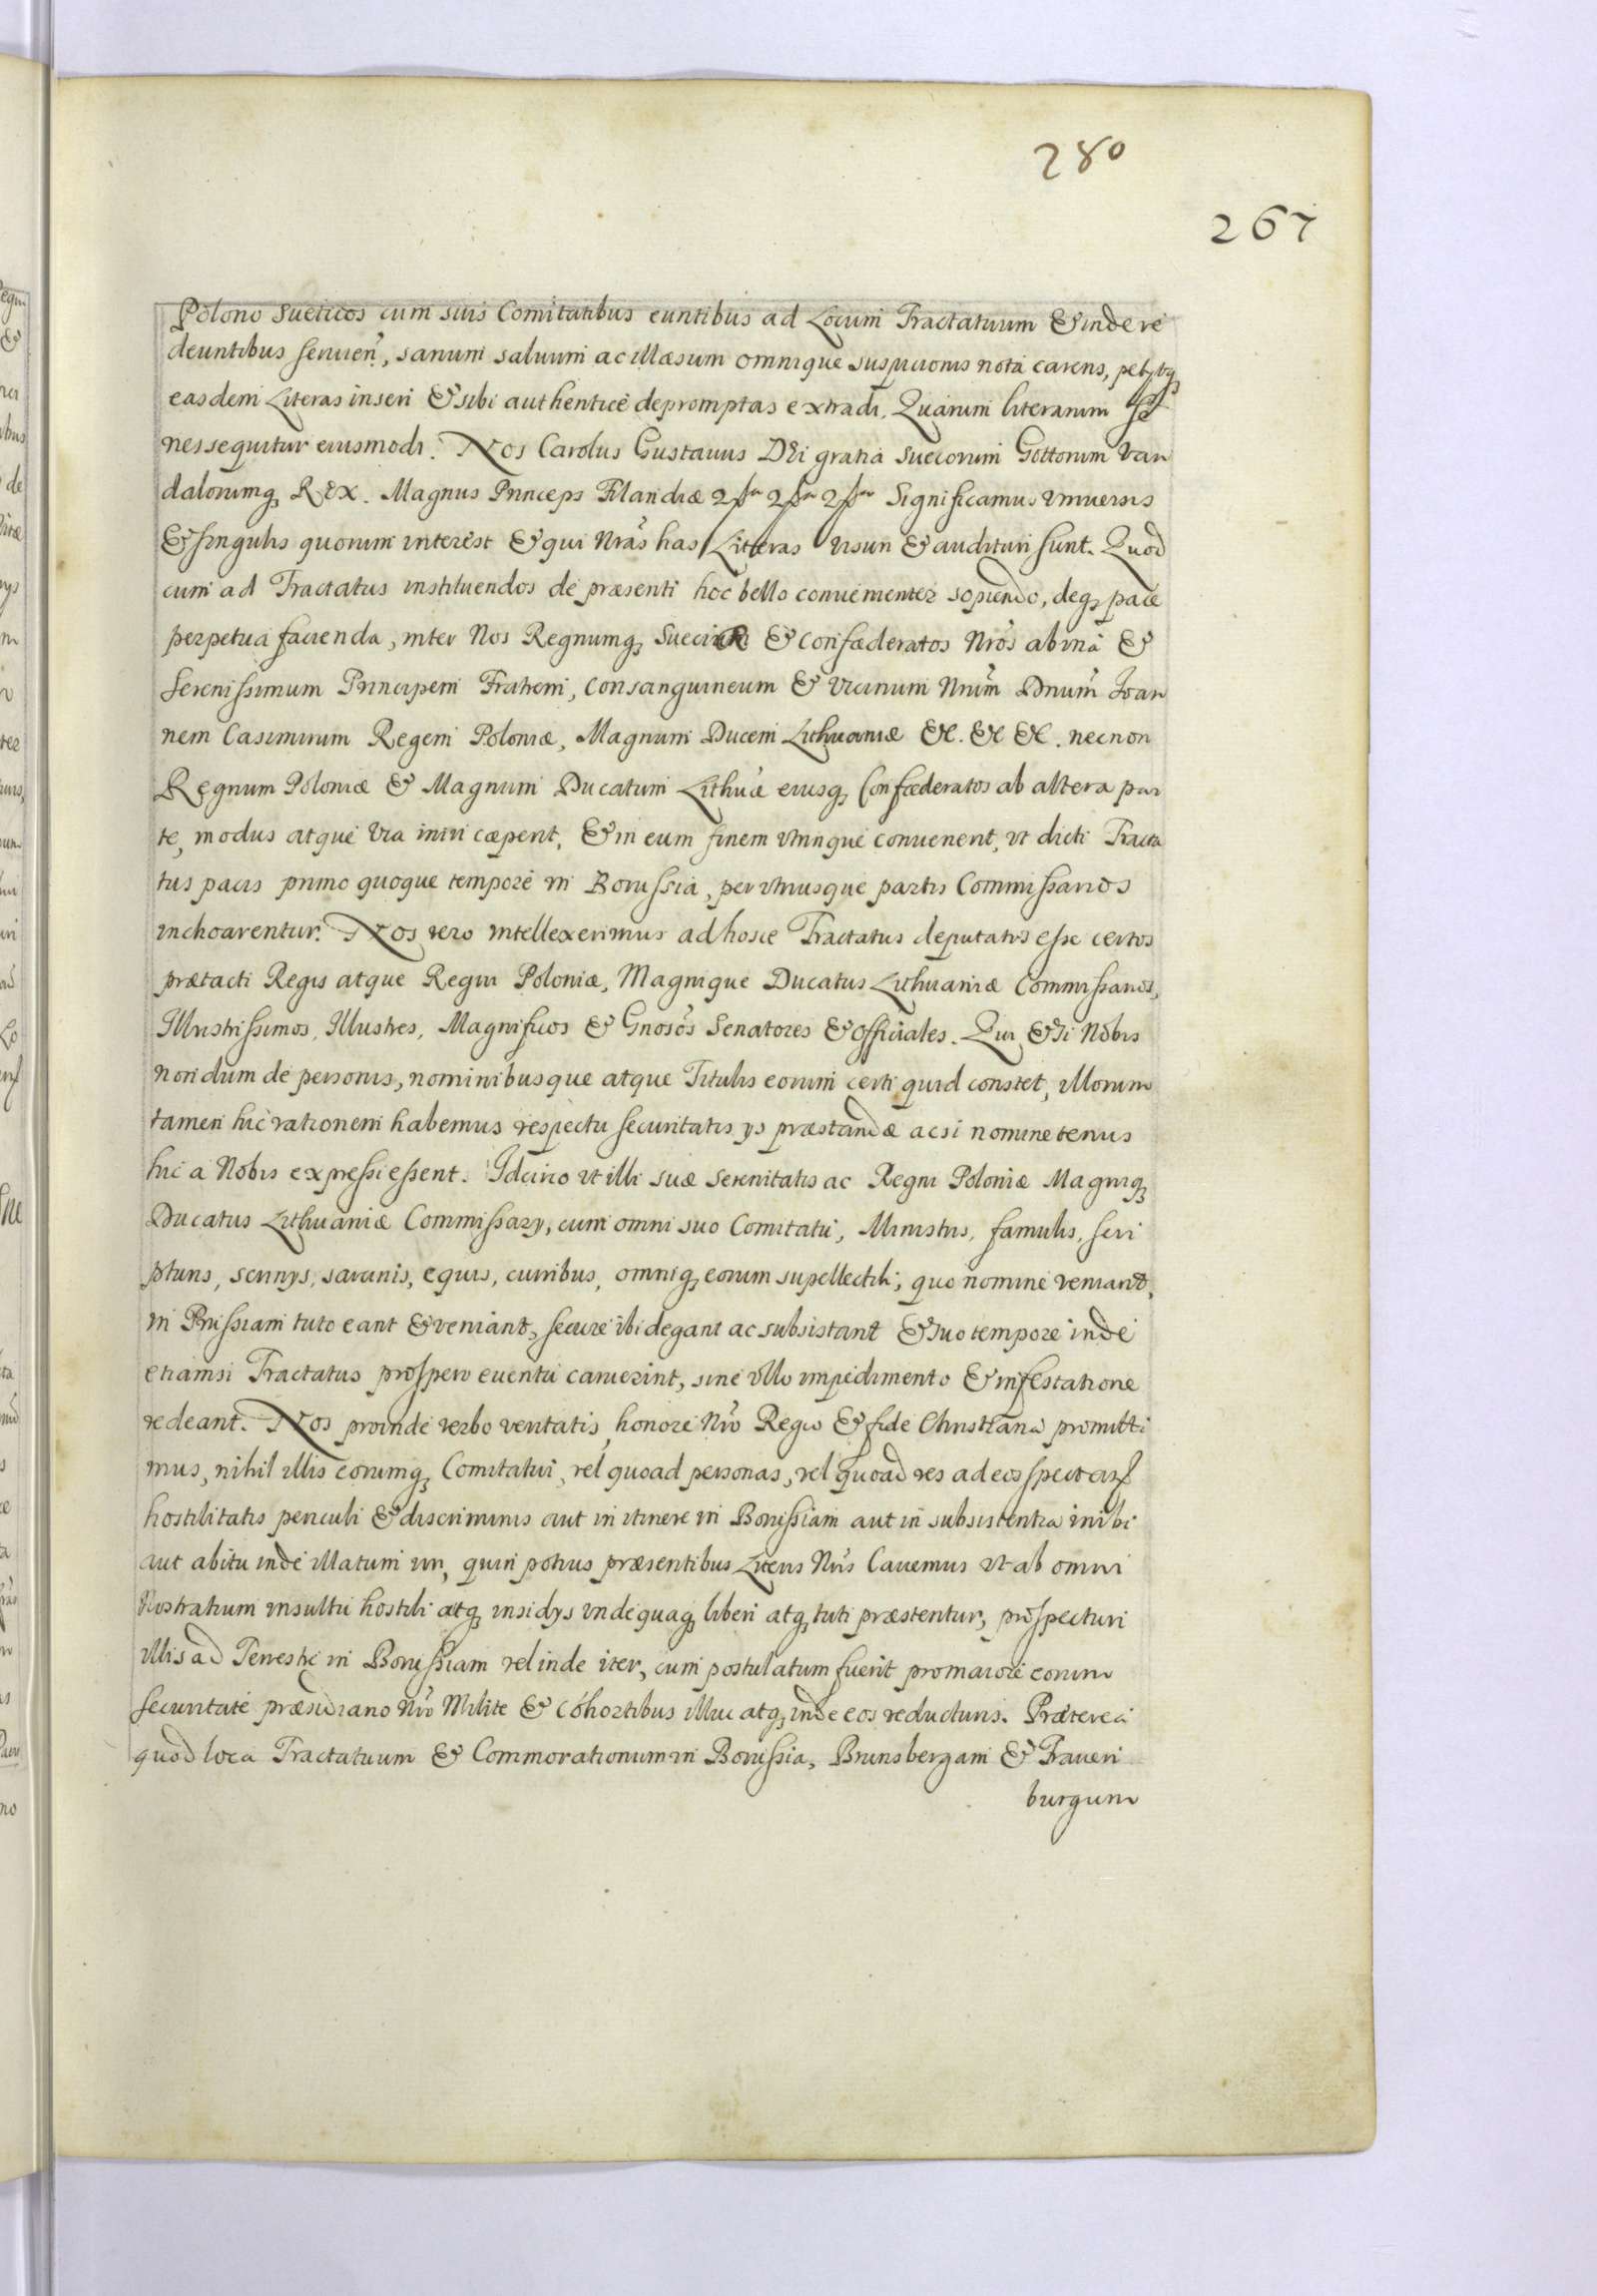 280
267
Polono Sueticos cum suis Comitatibus euntibus ad Locum Tractatuum & inde re
deuntibus seruien, sanum saluum ac illæsum omnique suspicionis nota carens, petytq
easdem Literas inseri & sibi authentice depromptas extradi. Quarum literarum se
nes sequitur eiusmodi. Nos Carolus Gustauus DEi gratia Suecorum Gottorum Van
dalorumq REX. Magnus Princeps Filandiæ Significamus vniuersis
& singulis quorum interest & qui Nras has Literas visuri & audituri sunt. Quod
cum ad Tractatus instituendos de præsenti hoc bello conuenienter sopiendo, deq pace
perpetua facienda, inter Nos Regnumq & Confæderatos Nros ab vna &
Serenissimum Principem Fratrem, Consanguineum & Vicinum Nrum Dnum Ioan
nem Casimirum Regem Poloniæ, Magnum Ducem Lithuaniæ &c. &c &c. necnon
Regnum Poloniæ & Magnum Ducatum Lithuæ eiusq Confæderatos ab altera par
te, modus atque via iniri cæperit, & in eum finem vtrinque conuenerit, vt dicti Tracta
tus pacis primo quoque tempore in Borussia, per vtriusque partis Commissarios
inchoarentur. Nos vero intellexerimus ad hosce Tractatus deputatos esse certos
prætacti Regis atque Regni Poloniæ, Magnique Ducatus Lithuaniæ Commissarios,
Illustrissimos, Illustres, Magnificos & Gnosos Senatores & Officiales. Qui, Etsi Nobis
nondum de personis, nominibusque atque Titulis eorum certi quid constet, illorum
tamen hic rationem habemus respectu securitatis ys præstandæ acsi nomine tenus
hic a Nobis expressi essent. Idcirco vt illi suæ Serenitatis ac Regni Poloniæ Magniq
Ducatus Lithuaniæ Commissary, cum omni suo Comitatu, Ministris, famulis, scri
pturis, scrinys, sarcinis, equis, curribus, omniq eorum supellectili, quo nomine veniant,
in Prussiam tuto eant & veniant, secure ibi degant ac subsistant & suo tempore inde
etiamsi Tractatus prospero euentu caruerint, sine vllo impedimento & infestatione
redeant. Nos proinde verbo veritatis, honore Nro Regio & fide Christiana promitti
mus, nihil illis eorumq Comitatui, vel quoad personas, vel quoad res ad eos spectan
hostilitatis periculi & discriminis aut in itinere in Borussiam aut in subsistentia inibi
aut abitu inde illatum iri, quin potius præsentibus Literis Nris Cauemus vt ab omni
Nostratium insultu hostili atq insidys vndequaq liberi atq tuti præstentur, prospecturi
illis ad Terrestre in Borussiam vel inde iter, cum postulatum fuerit pro maiore eorum
securitate præsidiario Nro Milite & Cohortibus illuc atq inde eos reducturis. Præterea
quod loca Tractatuum & Commorationum in Borussia, Brunsbergam & Frauen
burgum